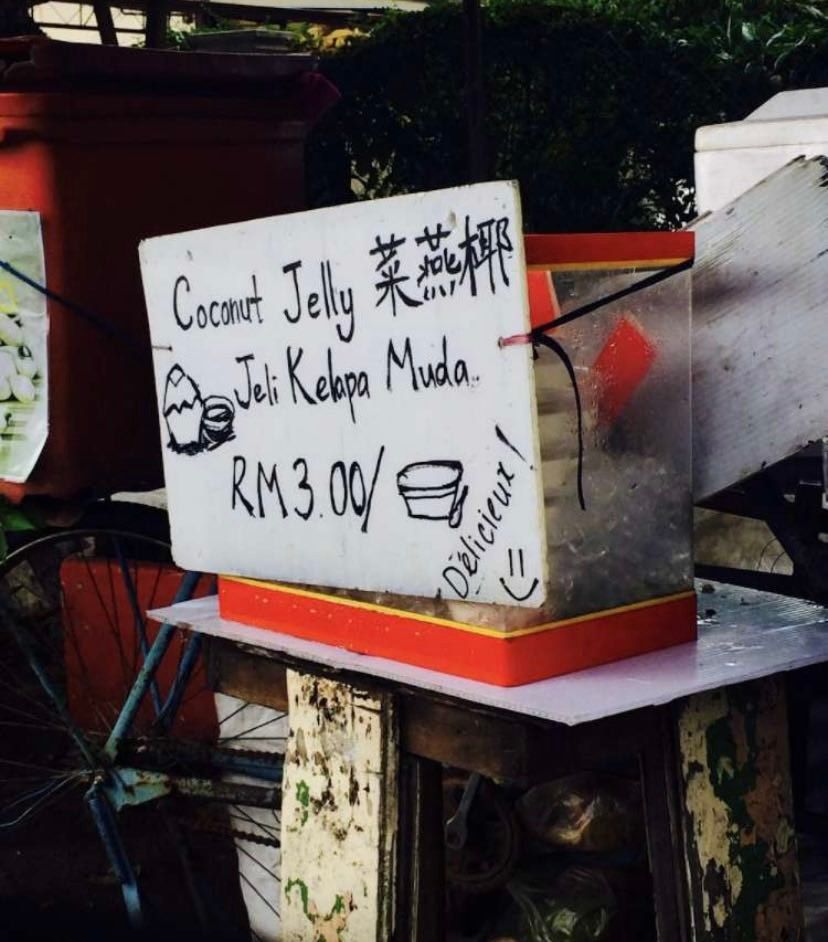 Coconut Jelly 菜燕椰
Jeli Kelapa Muda..
RM3.00/
Délicieux!